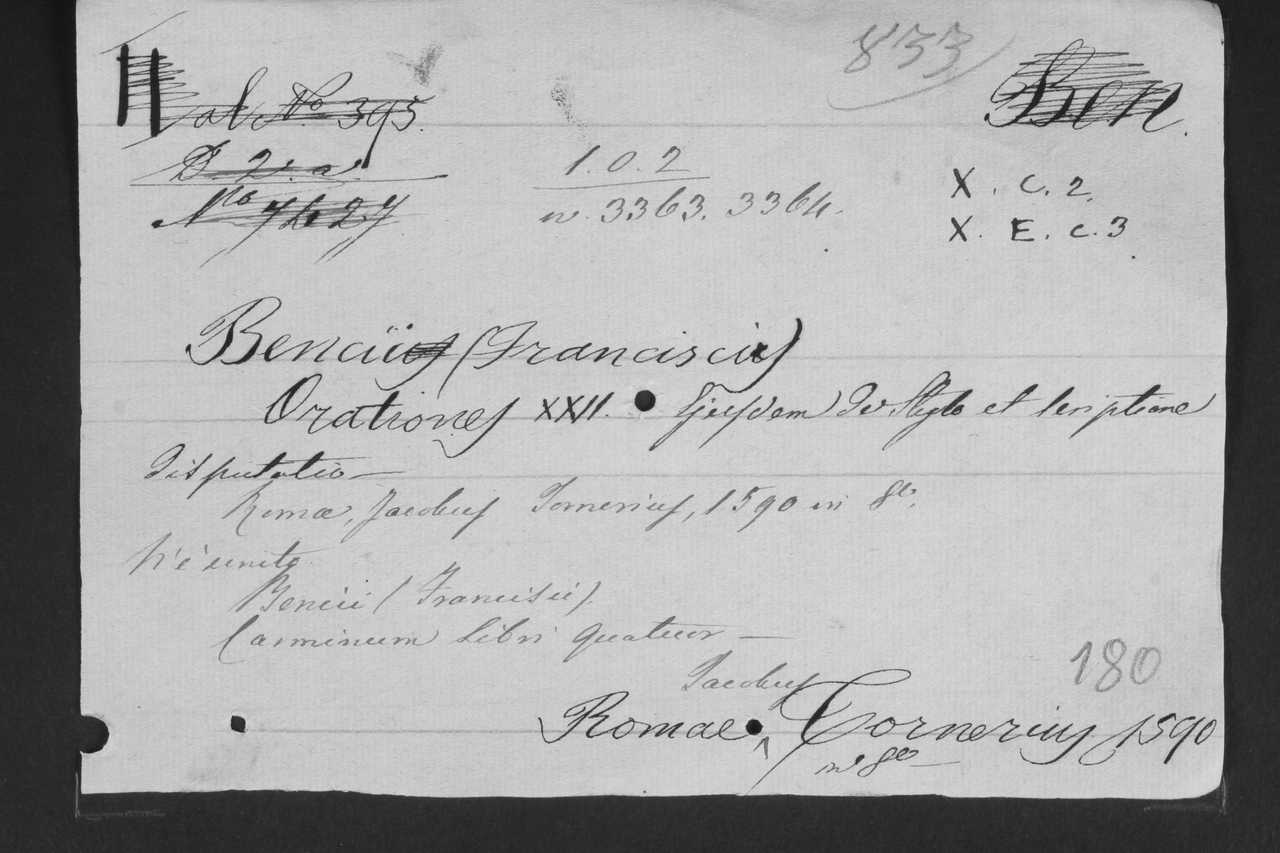 833
Val No 395. Ben.
D. 2. a 1.0.2 X. C. 2.
No 7627 n. 3363. 3364. X. E. c. 3
Bencii (Francisci)
Orationes XXII. Ejusdem de Stylo et scriptione
disputatio
Romæ, Jacobus Tornerius, 1590 in 8º.
V'è unito
Bencii (Francisci).
Carminum Libri quatuor —
180
Jacobus
Romae Tornerius 1590
in 8º